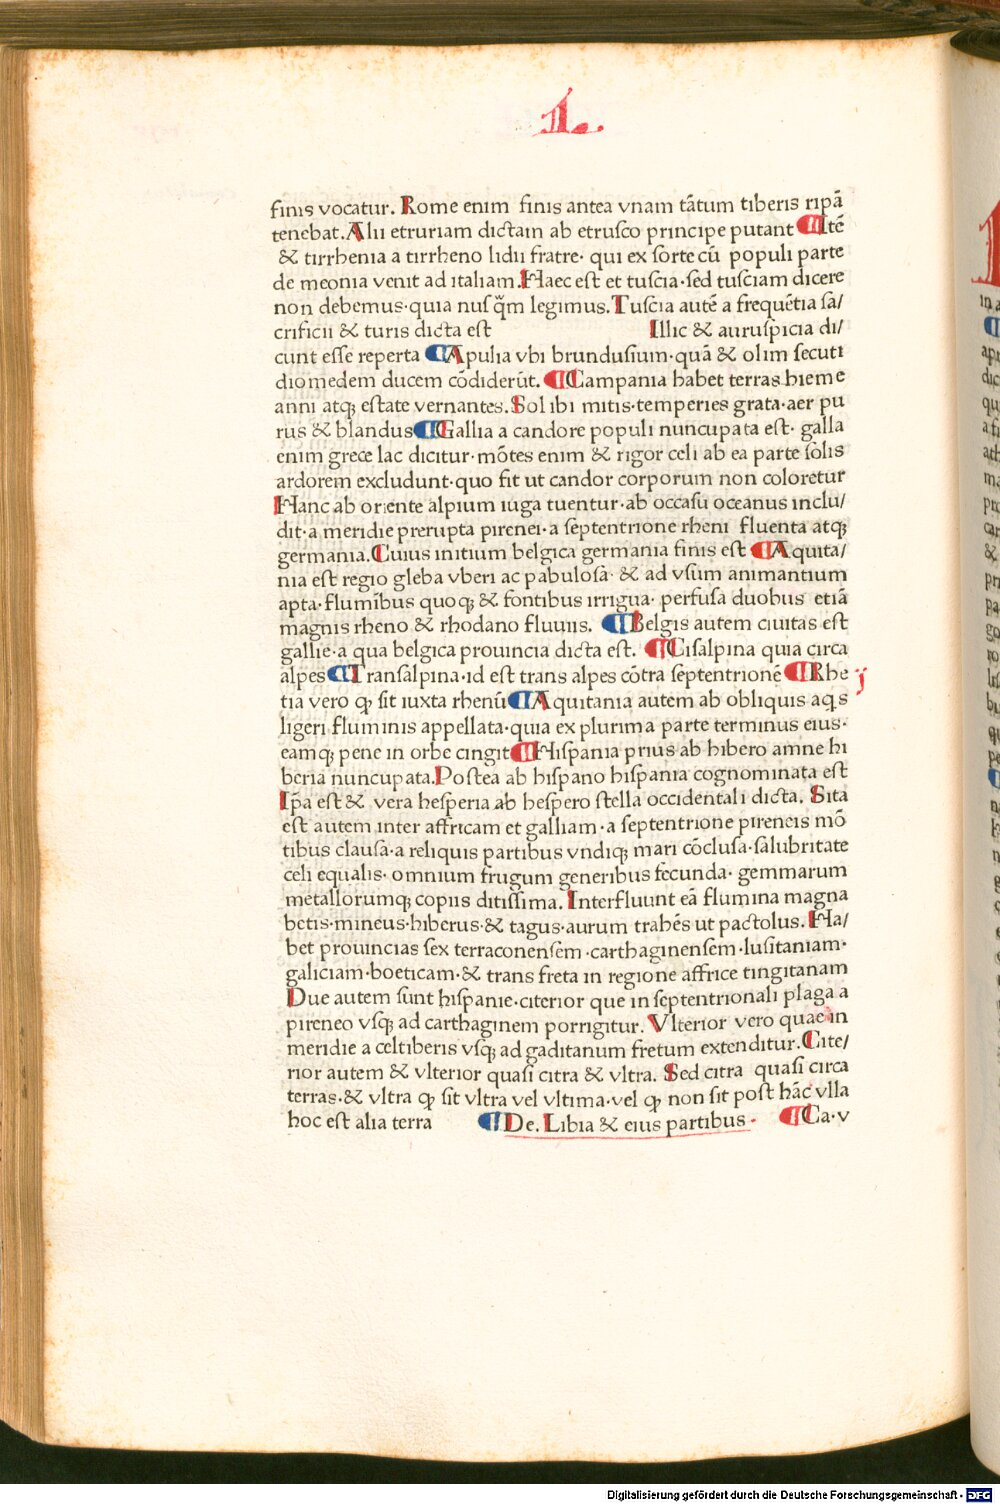 L.
finis vocatur. Rome enim finis antea vnam tātum tiberis ripā
tenebat. Alii etruriam dictam ab etrusco principe putant ¶ Itē
& tirrhenia a tirrheno lidii fratre· qui ex sorte cū populi parte
de meonia venit ad italiam. Haec est et tuscia·sed tusciam dicere
non debemus·quia nusq̄m legimus. Tuscia autē a frequētia sa/
crificii & turis dicta est Illic & auruspicia di/
cunt esse reperta ¶ Apulia vbi brundusium·quā & olim secuti
diomedem ducem cōdiderūt. ¶ Campania habet terras hieme
anni atq; estate vernantes. Sol ibi mitis·temperies grata·aer pu
rus & blandus ¶ Gallia a candore populi nuncupata est· galla
enim grece lac dicitur·mōtes enim & rigor celi ab ea parte solis
ardorem excludunt·quo fit ut candor corporum non coloretur
Hanc ab oriente alpium iuga tuentur·ab occasu oceanus inclu/
dit·a meridie prerupta pirenei·a septentrione rheni fluenta atq;
germania. Cuius initium belgica germania finis est ¶ Aquita/
nia est regio gleba vberi ac pabulosa· & ad vsum animantium
apta·fluminibus quoq; & fontibus irrigua· perfusa duobus etiā
magnis rheno & rhodano fluuiis. ¶ Belgis autem ciuitas est
gallie·a qua belgica prouincia dicta est. ¶ Cisalpina quia circa
alpes ¶ Transalpina·id est trans alpes cōtra septentrionē ¶ Rhe
tia vero ꝙ sit iuxta rhenū ¶ Aquitania autem ab obliquis aq̄s
ligeri fluminis appellata·quia ex plurima parte terminus eius·
eamq; pene in orbe cingit ¶ Hispania prius ab hibero amne hi
beria nuncupata. Postea ab hispano hispania cognominata est
Ip̄a est & vera hesperia ab hespero stella occidentali dicta. Sita
est autem inter affricam et galliam·a septentrione pireneis mō
tibus clausa·a reliquis partibus vndiq; mari cōclusa·salubritate
celi equalis· omnium frugum generibus fecunda· gemmarum
metallorumq; copiis ditissima. Interfluunt eā flumina magna
betis·mineus·hiberus·& tagus·aurum trahēs ut pactolus. Ha/
bet prouincias sex terraconensem·carthaginensem·lusitaniam·
galiciam·boeticam·& trans freta in regione affrice tingitanam
Due autem sunt hispanie·citerior que in septentrionali plaga a
pireneo vsq; ad carthaginem porrigitur. Vlterior vero quae in
meridie a celtiberis vsq; ad gaditanum fretum extenditur. Cite/
rior autem & vlterior quasi citra & vltra. Sed citra quasi circa
terras·& vltra ꝙ sit vltra vel vltima·vel ꝙ non sit post hāc vlla
hoc est alia terra ¶ De. Libia & eius partibus· ¶ Ca·v
Digitalisierung gefördert durch die Deutsche Forschungsgemeinschaft - DFG